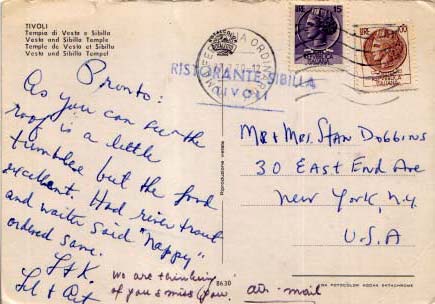 TIVOLI
Tempio di Vesta e Sibilla
Vesta and Sibilla Temple
Temple de Vesta et Sibilla
Vesta und Sibilla Tempel
Pronto:
As you can see the
roof is a little
tumbled but the food
excellent. Had river trout
and waiter said "Nappy"
ordered same.
L + K.
Lel & Art
we are thinking
of you & miss you.
8630
Riproduzione vietata
RISTORANTE SIBILLA
TIVOLI
LIRE 15
LIRE
Mr & Mrs. Stan Dobbins
30 East End Ave
New York, N.Y.
U.S.A
air-mail
FOTOCOLOR KODAK EKTACHROME